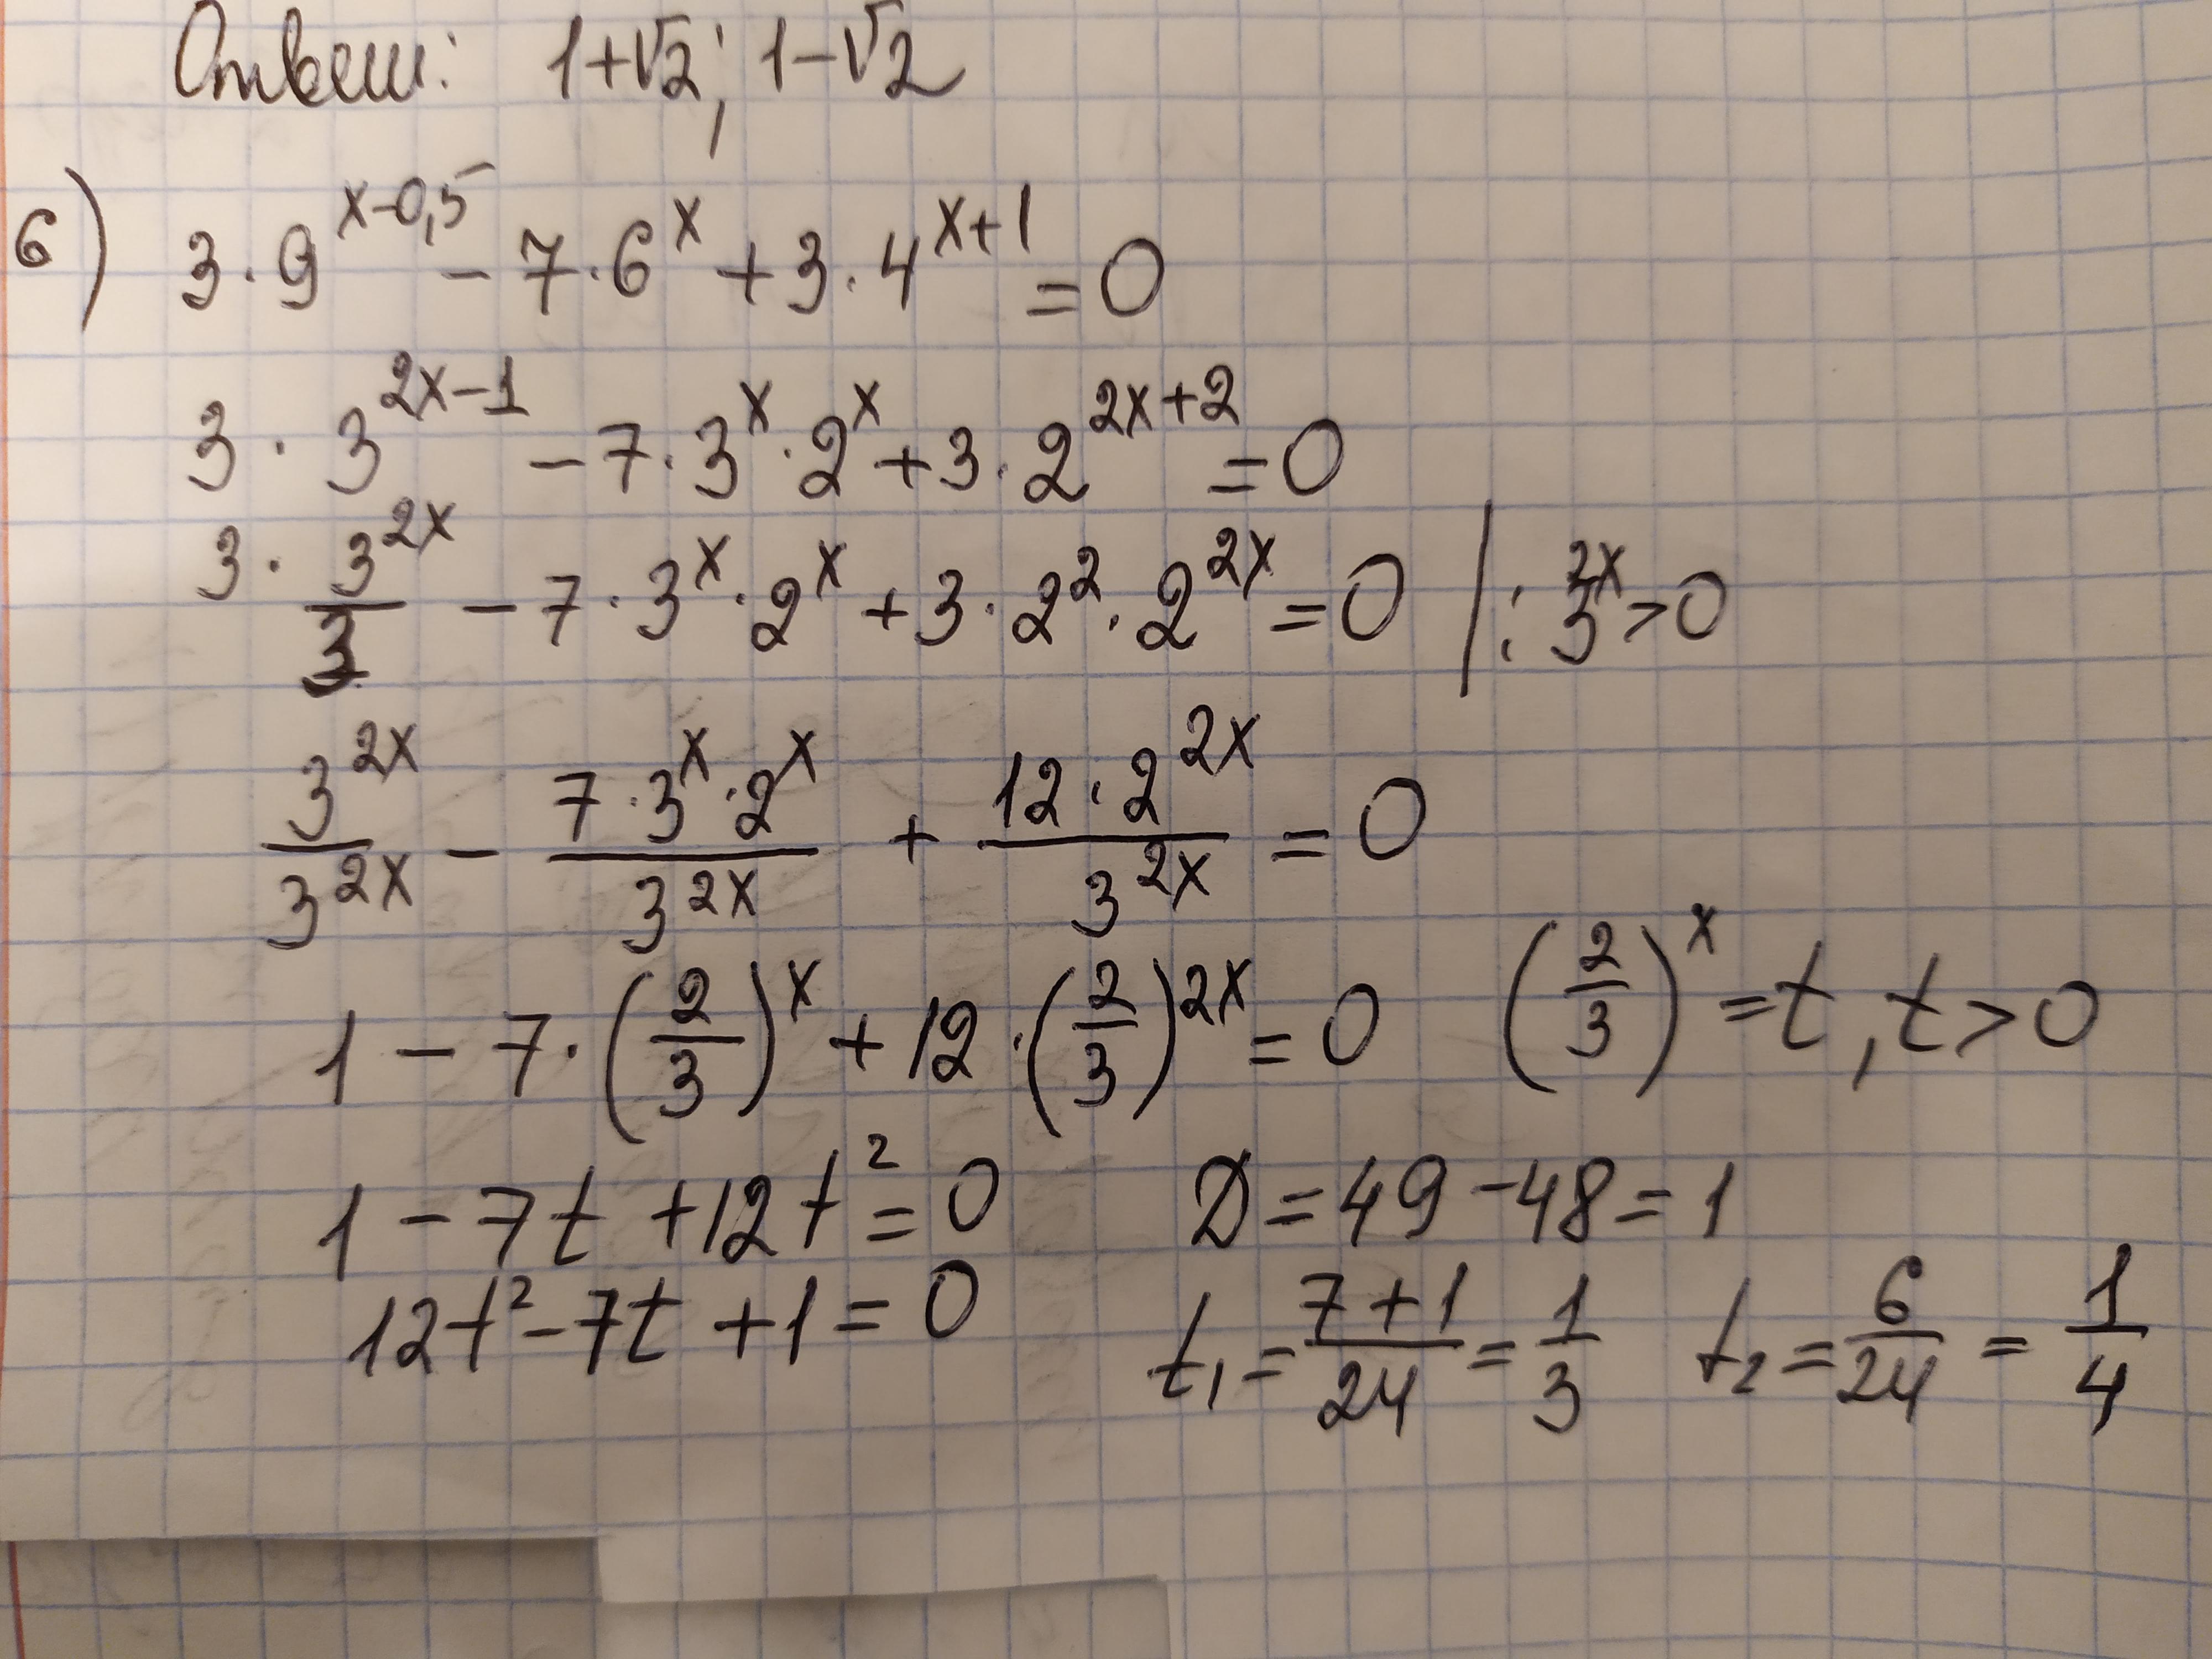 Ответ: 1+√2; 1-√2
6) 3·9^(x-0,5) - 7·6^x + 3·4^(x+1) = 0
3·3^(2x-1) - 7·3^x·2^x + 3·2^(2x+2) = 0
3·3^(2x)/3 - 7·3^x·2^x + 3·2^2·2^(2x) = 0 | : 3^(2x) > 0
3^(2x)/3^(2x) - 7·3^x·2^x/3^(2x) + 12·2^(2x)/3^(2x) = 0
1 - 7·(2/3)^x + 12·(2/3)^(2x) = 0 (2/3)^x = t, t > 0
1 - 7t + 12t^2 = 0 D = 49 - 48 = 1
12t^2 - 7t + 1 = 0 t₁ = (7+1)/24 = 1/3 t₂ = 6/24 = 1/4